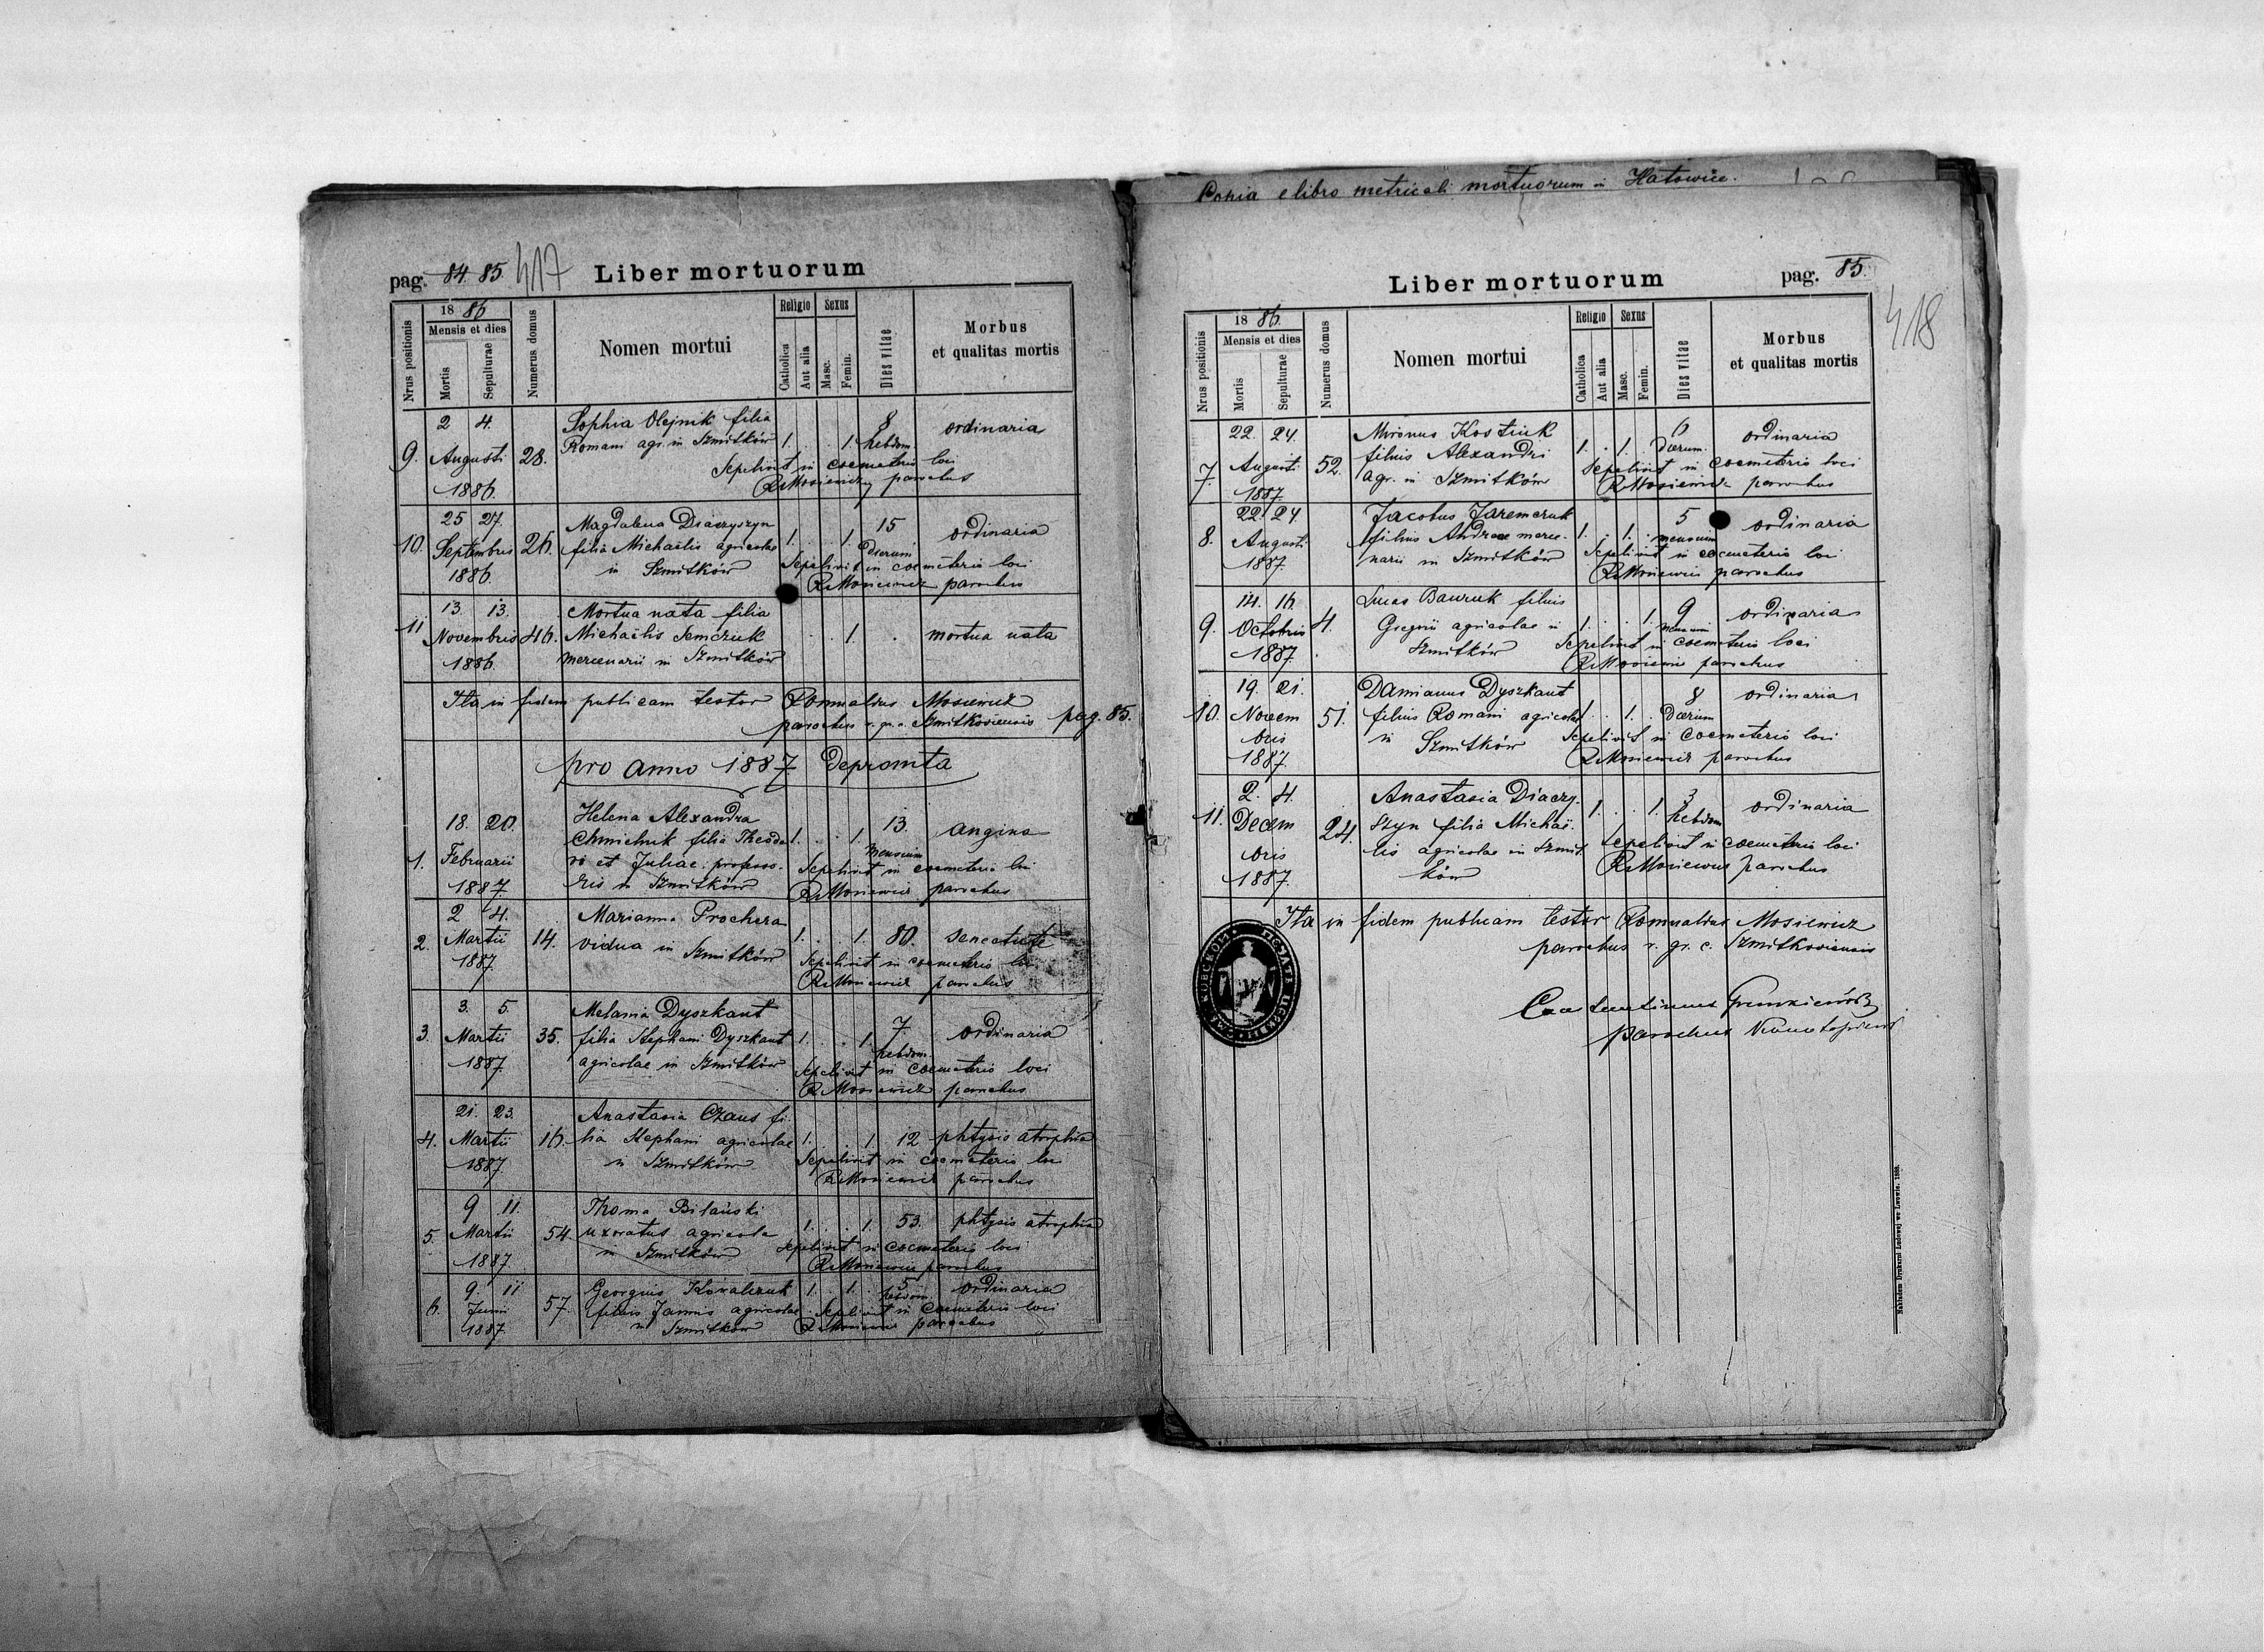 pag. 84. 85. 417 Liber mortuorum
Nrus positionis
18 86
Mensis et dies
Mortis
Sepulturae
Numerus domus
Nomen mortui
Religio
Catholica
Aut alia
Sexus
Masc.
Femin.
Dies vitae
Morbus
et qualitas mortis
9. 2 4. Augusti 1886. 28.
Sophia Olejnik filia
Romani agr. in Szmitków 1. . . 1. 8 hebdom. ordinaria
Sepelivit in coemeterio loci
R Mosiewicz parochus
10. 25 27. Septembris 1886. 26.
Magdalena Diaczyszyn
filia Michaëlis agricolae
in Szmitków 1. . . 1. 15 dierum ordinaria
Sepelivit in coemeterio loci
R Mosiewicz parochus
11 13. 13. Novembris 1886. 46.
Mortua nata filia
Michaëlis Semczuk
mercenarii in Szmitków . . 1. . mortua nata
Ita in fidem publicam testor Romualdus Mosiewicz
parochus r. gr. c. Szmitkoviensis pag. 85.
pro anno 1887 depromta
1. 18. 20. Februarii 1887.
Helena Alexandra
Chmielnik filia Theodo
ri et Juliae professo-
ris in Szmitków 1. . . 1. 13. mensium angina
Sepelivit in coemeterio loci
R Mosiewicz parochus
2. 2 4. Martii 1887. 14.
Marianna Prochera
vidua in Szmitków 1. . . 1. 80. senectute
Sepelivit in coemeterio loci
R Mosiewicz parochus
3. 3. 5. Martii 1887. 35.
Melania Dyszkant
filia Stephani Dyszkant
agricolae in Szmitków 1. . . 1. 7. hebdom. ordinaria
Sepelivit in coemeterio loci
R Mosiewicz parochus
4. 21. 23. Martii 1887. 16.
Anastasia Czaus fi-
lia Stephani agricolae
in Szmitków 1. . . 1. 12 phtysis atrophia
Sepelivit in coemeterio loci
R Mosiewicz parochus
5. 9 11. Martii 1887. 54.
Thoma Bilański
uxoratus agricola
in Szmitków 1. . . 1. 53. phtysis atrophia
Sepelivit in coemeterio loci
R Mosiewicz parochus
6. 9. 11 Junii 1887. 57.
Georgius Kowalczuk
filius Joannis agricolae
in Szmitków 1. . 1. . 5 hebdom. ordinaria
Sepelivit in coemeterio loci
R Mosiewicz parochus
Copia e libro metricali mortuorum in Hatowice.
Liber mortuorum pag. 85.
418
Nrus positionis
18 86.
Mensis et dies
Mortis
Sepulturae
Numerus domus
Nomen mortui
Religio
Catholica
Aut alia
Sexus
Masc.
Femin.
Dies vitae
Morbus
et qualitas mortis
7. 22. 24. Augusti 1887. 52.
Mironus Kostiuk
filius Alexandri
agr. in Szmitków 1. . 1. . 6 dierum. ordinaria
Sepelivit in coemeterio loci
R Mosiewicz parochus
8. 22. 24. Augusti 1887.
Jacobus Jaremczuk
filius Andreae merce-
narii in Szmitków 1. . 1. . 5 mensium ordinaria
Sepelivit in coemeterio loci
R Mosiewicz parochus
9. 14. 16. Octobris 1887. 4.
Lucas Bauruk filius
Gregorii agricolae in
Szmitków 1. . . 1. 9 mensium ordinaria
Sepelivit in coemeterio loci
R Mosiewicz parochus
10. 19. 21. Novem bris 1887. 51.
Damianus Dyszkant
filius Romani agricolae
in Szmitków 1. . 1. . 8 dierum ordinaria
Sepelivit in coemeterio loci
R Mosiewicz parochus
11. 2. 4. Decem bris 1887. 24.
Anastasia Diaczy-
szyn filia Michaë-
lis agricolae in Szmit-
ków 1. . . 1. 3 hebdom ordinaria
Sepelivit in coemeterio loci
R Mosiewicz parochus
Ita in fidem publicam testor Romualdus Mosiewicz
parochus r. gr. c. Szmitkoviensis
parochus
Nakładem Drukarni Ludowej we Lwowie. 1888.